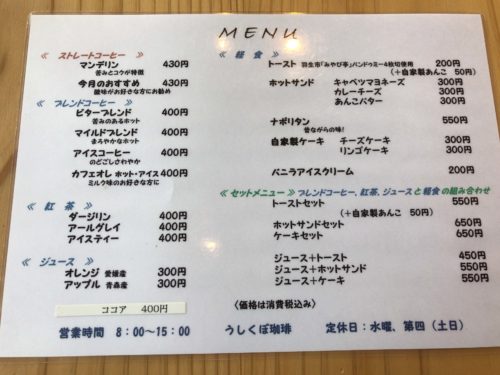 MENU
≪ ストレートコーヒー ≫
マンデリン 430円
苦みとコクが特徴
今月のおすすめ 430円
酸味がお好きな方にお勧め
≪ ブレンドコーヒー ≫
ビターブレンド 400円
苦みのあるホット
マイルドブレンド 400円
まろやかなホット
アイスコーヒー 400円
のどごしさわやか
カフェオレ ホット・アイス 400円
ミルク味のお好きな方に
≪ 紅 茶 ≫
ダージリン 400円
アールグレイ 400円
アイスティー 400円
≪ ジュース ≫
オレンジ 愛媛産 300円
アップル 青森産 300円
ココア 400円
≪ 軽 食 ≫
トースト 羽生市「みやび亭」パンドゥミー4枚切使用 200円
(+自家製あんこ 50円)
ホットサンド キャベツマヨネーズ 300円
カレーチーズ 300円
あんこバター 300円
ナポリタン 550円
昔ながらの味!
自家製ケーキ チーズケーキ 300円
リンゴケーキ 300円
バニラアイスクリーム 200円
≪ セットメニュー ≫ ブレンドコーヒー、紅茶、ジュースと軽食の組み合わせ
トーストセット 550円
(+自家製あんこ 50円)
ホットサンドセット 650円
ケーキセット 650円
ジュース+トースト 450円
ジュース+ホットサンド 550円
ジュース+ケーキ 550円
〈価格は消費税込み〉
営業時間 8:00~15:00 うしくぼ珈琲 定休日:水曜、第四(土日)